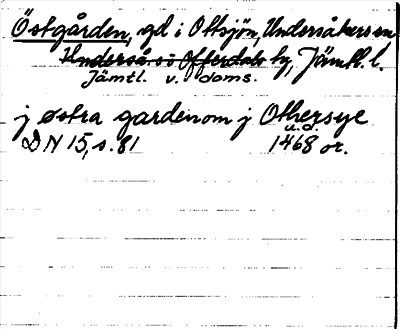 Östgården, gd i Ottsjön, Undersåkers sn
Underså o Offerdals ty, Jämtl. l.
Jämtl. v. doms.
j østra gardenom j Othersye
u.d.
DN 15, s. 81 1468 or.